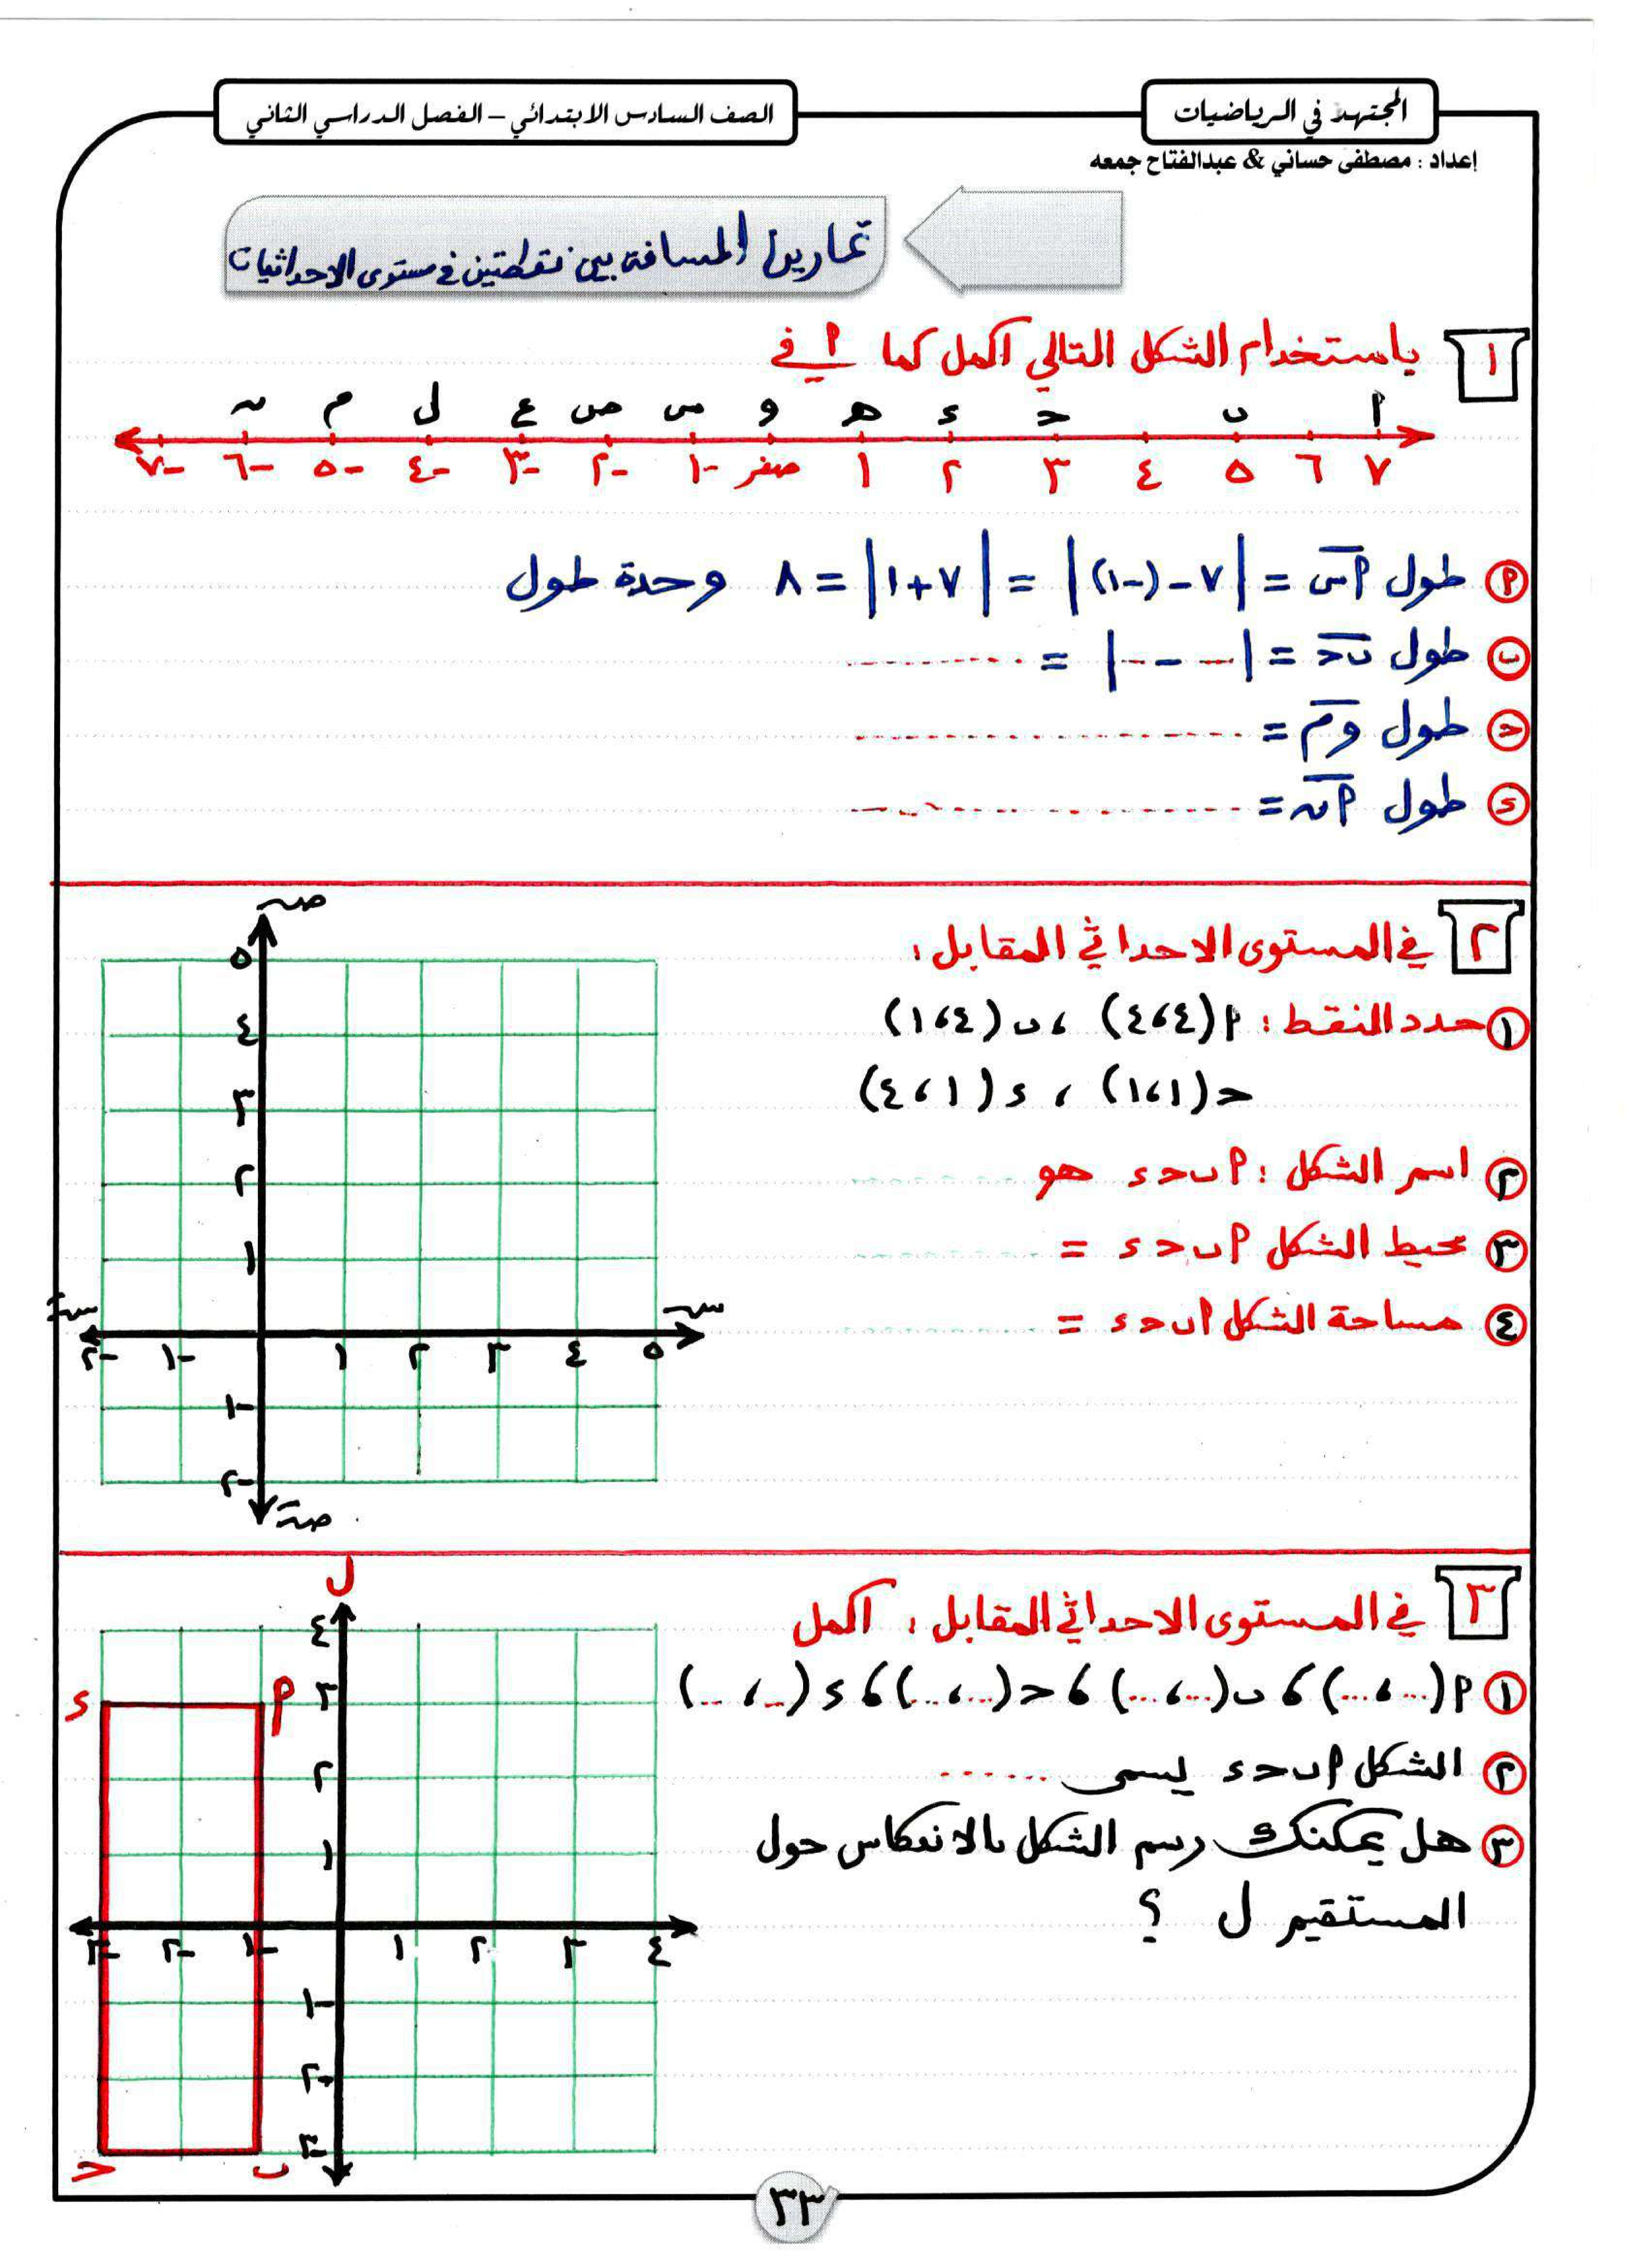 المجتهد في الرياضيات
الصف السادس الابتدائي – الفصل الدراسي الثاني
إعداد : مصطفى حساني & عبدالفتاح جمعه
تمارين المسافة بين نقطتين في مستوى الاحداثيات
١ باستخدام الشكل التالي اكمل كما في ٩
٩ ب ح ء هـ و س ص ع ل م ن
٧ ٦ ٥ ٤ ٣ ٢ ١ صفر -١ -٢ -٣ -٤ -٥ -٦ -٧
٩ طول ٩س = |٧ - (-١)| = |٧ + ١| = ٨ وحدة طول
ب طول ب ح = |... - ...| = ..........
ح طول وم = ....................
ء طول ٩ن = ....................
٢ في المستوى الاحداثي المقابل :
١ حدد النقط : ٩(٤،٤) ، ب(٤،١)
ح(١،١) ، ء(١،٤)
٢ اسم الشكل : ٩ب ح ء هو ..........
٣ محيط الشكل ٩ب ح ء = ..........
٤ مساحة الشكل ٩ب ح ء = ..........
صَ
٥
٤
٣
٢
١
سَ س
-٢ -١ ١ ٢ ٣ ٤ ٥
-١
-٢
صَ
٣ في المستوى الاحداثي المقابل : اكمل
١ ٩(...،...) ، ب(...،...) ، ح(...،...) ، ء(...،...)
٢ الشكل ٩ب ح ء يسمى ......
٣ هل يمكنك رسم الشكل بالانعكاس حول
المستقيم ل ؟
ل
٤
ء ٩ ٣
٢
١
-٣ -٢ -١ ١ ٢ ٣ ٤
-١
-٢
-٣
ح ب
٣٣